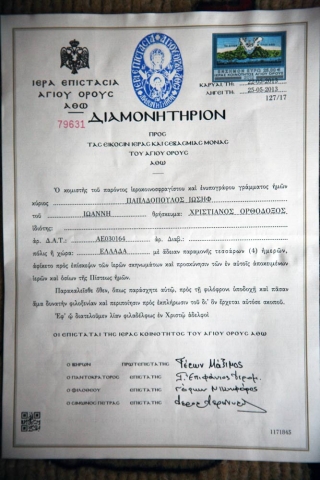 ΙΕΡΑ ΕΠΙΣΤΑΣΙΑ
ΑΓΙΟΥ ΟΡΟΥΣ
ΑΘΩ
79631
ΚΑΡΥΑΙ Τῌ
ΛΗΓΕΙ Τῌ 25-05-2013
127/17
ΔΙΑΜΟΝΗΤΗΡΙΟΝ
ΠΡΟΣ
ΤΑΣ ΕΙΚΟΣΙΝ ΙΕΡΑΣ ΚΑΙ ΣΕΒΑΣΜΙΑΣ ΜΟΝΑΣ
ΤΟΥ ΑΓΙΟΥ ΟΡΟΥΣ
ΑΘΩ
Ὁ κομιστὴς τοῦ παρόντος ἱεροκοινοσφραγίστου καὶ ἐνυπογράφου γράμματος ἡμῶν
κύριος ΠΑΠΑΔΟΠΟΥΛΟΣ ΙΩΣΗΦ
τοῦ ΙΩΑΝΝΗ θρήσκευμα: ΧΡΙΣΤΙΑΝΟΣ ΟΡΘΟΔΟΞΟΣ
ἰδιότης:
ἀρ. Δ.Α.Τ.: ΑΕ030164 ἀρ. Διαβ.:
πόλις ἢ χώρα: ΕΛΛΑΔΑ μὲ ἄδειαν παραμονῆς τεσσάρων (4) ἡμερῶν,
ἀφίκετο πρὸς ἐπίσκεψιν τῶν ἱερῶν σκηνωμάτων καὶ προσκύνησιν τῶν ἐν αὐτοῖς ἀποκειμένων
ἱερῶν καὶ ὁσίων τῆς Πίστεως ἡμῶν.
Παρακαλεῖσθε ὅθεν, ὅπως παράσχητε αὐτῷ, πρὸς τῇ φιλόφρονι ὑποδοχῇ καὶ πᾶσαν
ἅμα δυνατὴν φιλοξενίαν καὶ περιποίησιν πρὸς ἐκπλήρωσιν τοῦ δι' ὃν ἔρχεται αὐτόσε σκοποῦ.
Ἐφ' ᾧ διατελοῦμεν λίαν φιλαδέλφως ἐν Χριστῷ ἀδελφοί
ΟΙ ΕΠΙΣΤΑΤΑΙ ΤΗΣ ΙΕΡΑΣ ΚΟΙΝΟΤΗΤΟΣ ΤΟΥ ΑΓΙΟΥ ΟΡΟΥΣ ΑΘΩ
Ο ΙΒΗΡΩΝ ΠΡΩΤΕΠΙΣΤΑΤΗΣ Γέρων Μάξιμος
Ο ΠΑΝΤΟΚΡΑΤΟΡΟΣ Ἐπιφάνιος
Ο ΦΙΛΟΘΕΟΥ Γέρων Νικηφόρος
Ο ΣΙΜΩΝΟΣΠΕΤΡΑΣ
1171845